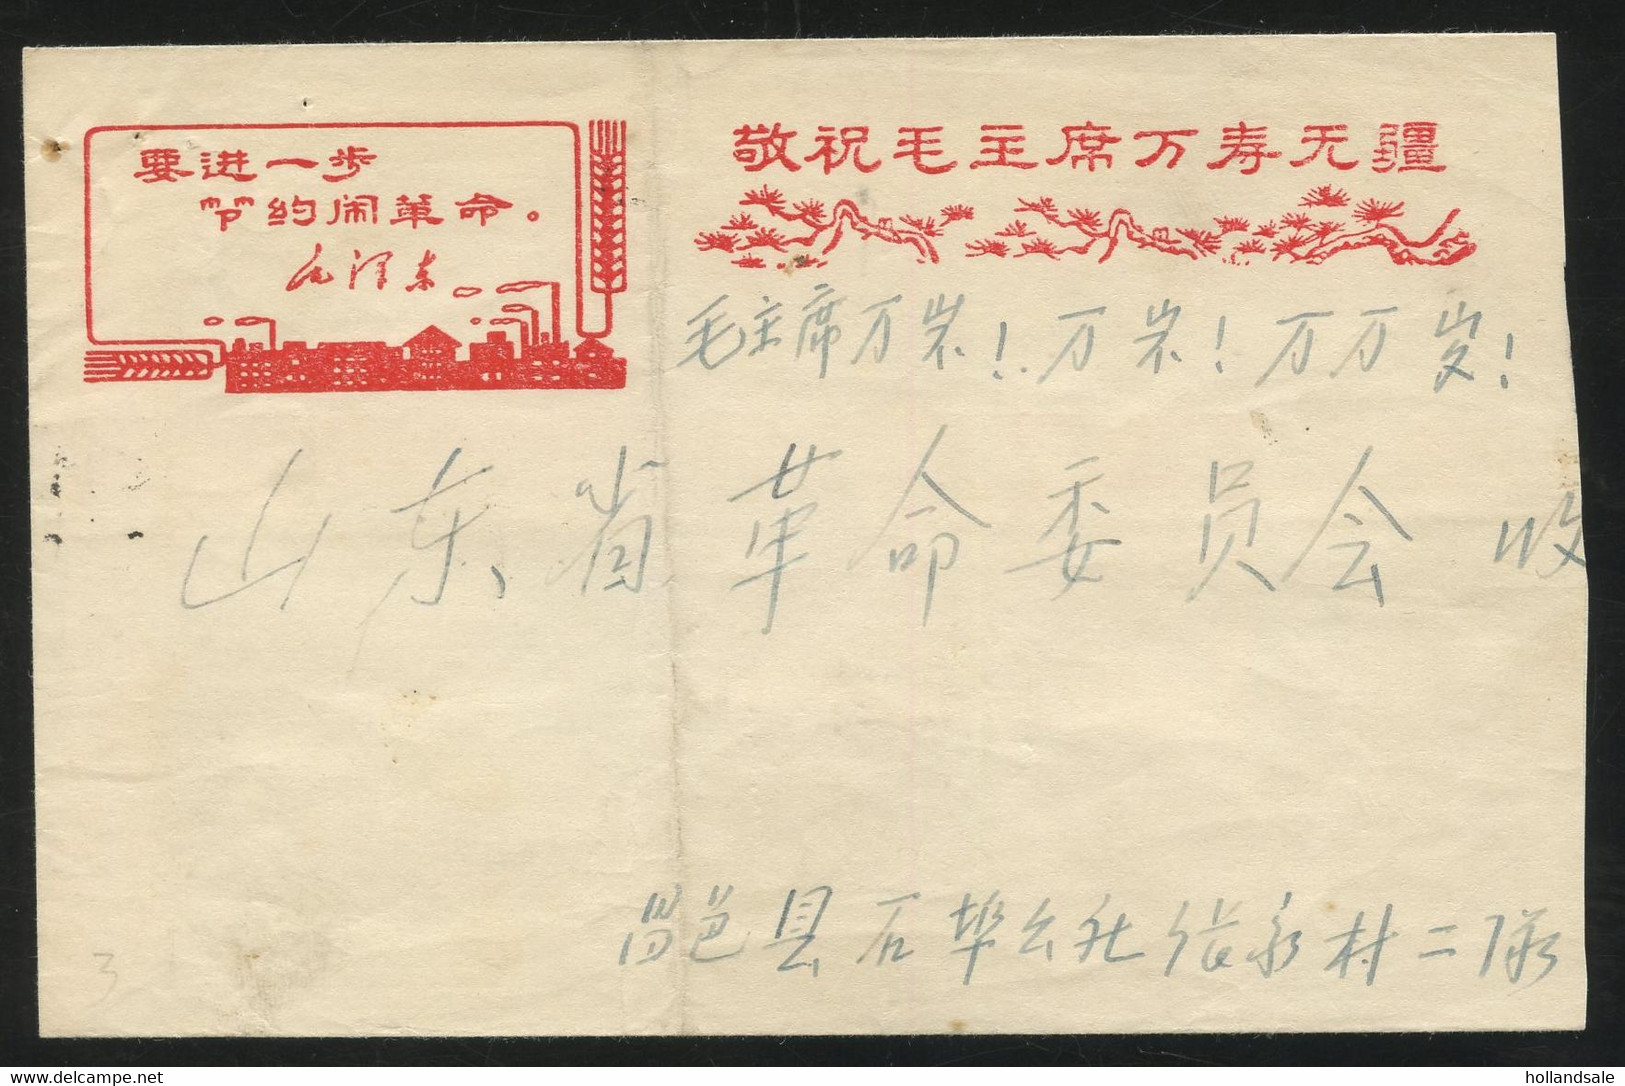 要进一步
节约闹革命。
毛泽东
敬祝毛主席万寿无疆
毛主席万岁！万岁！万万岁！
山东省革命委员会 收
昌邑县石埠公社 村二队
3
https://www.delcampe.net
hollandsale